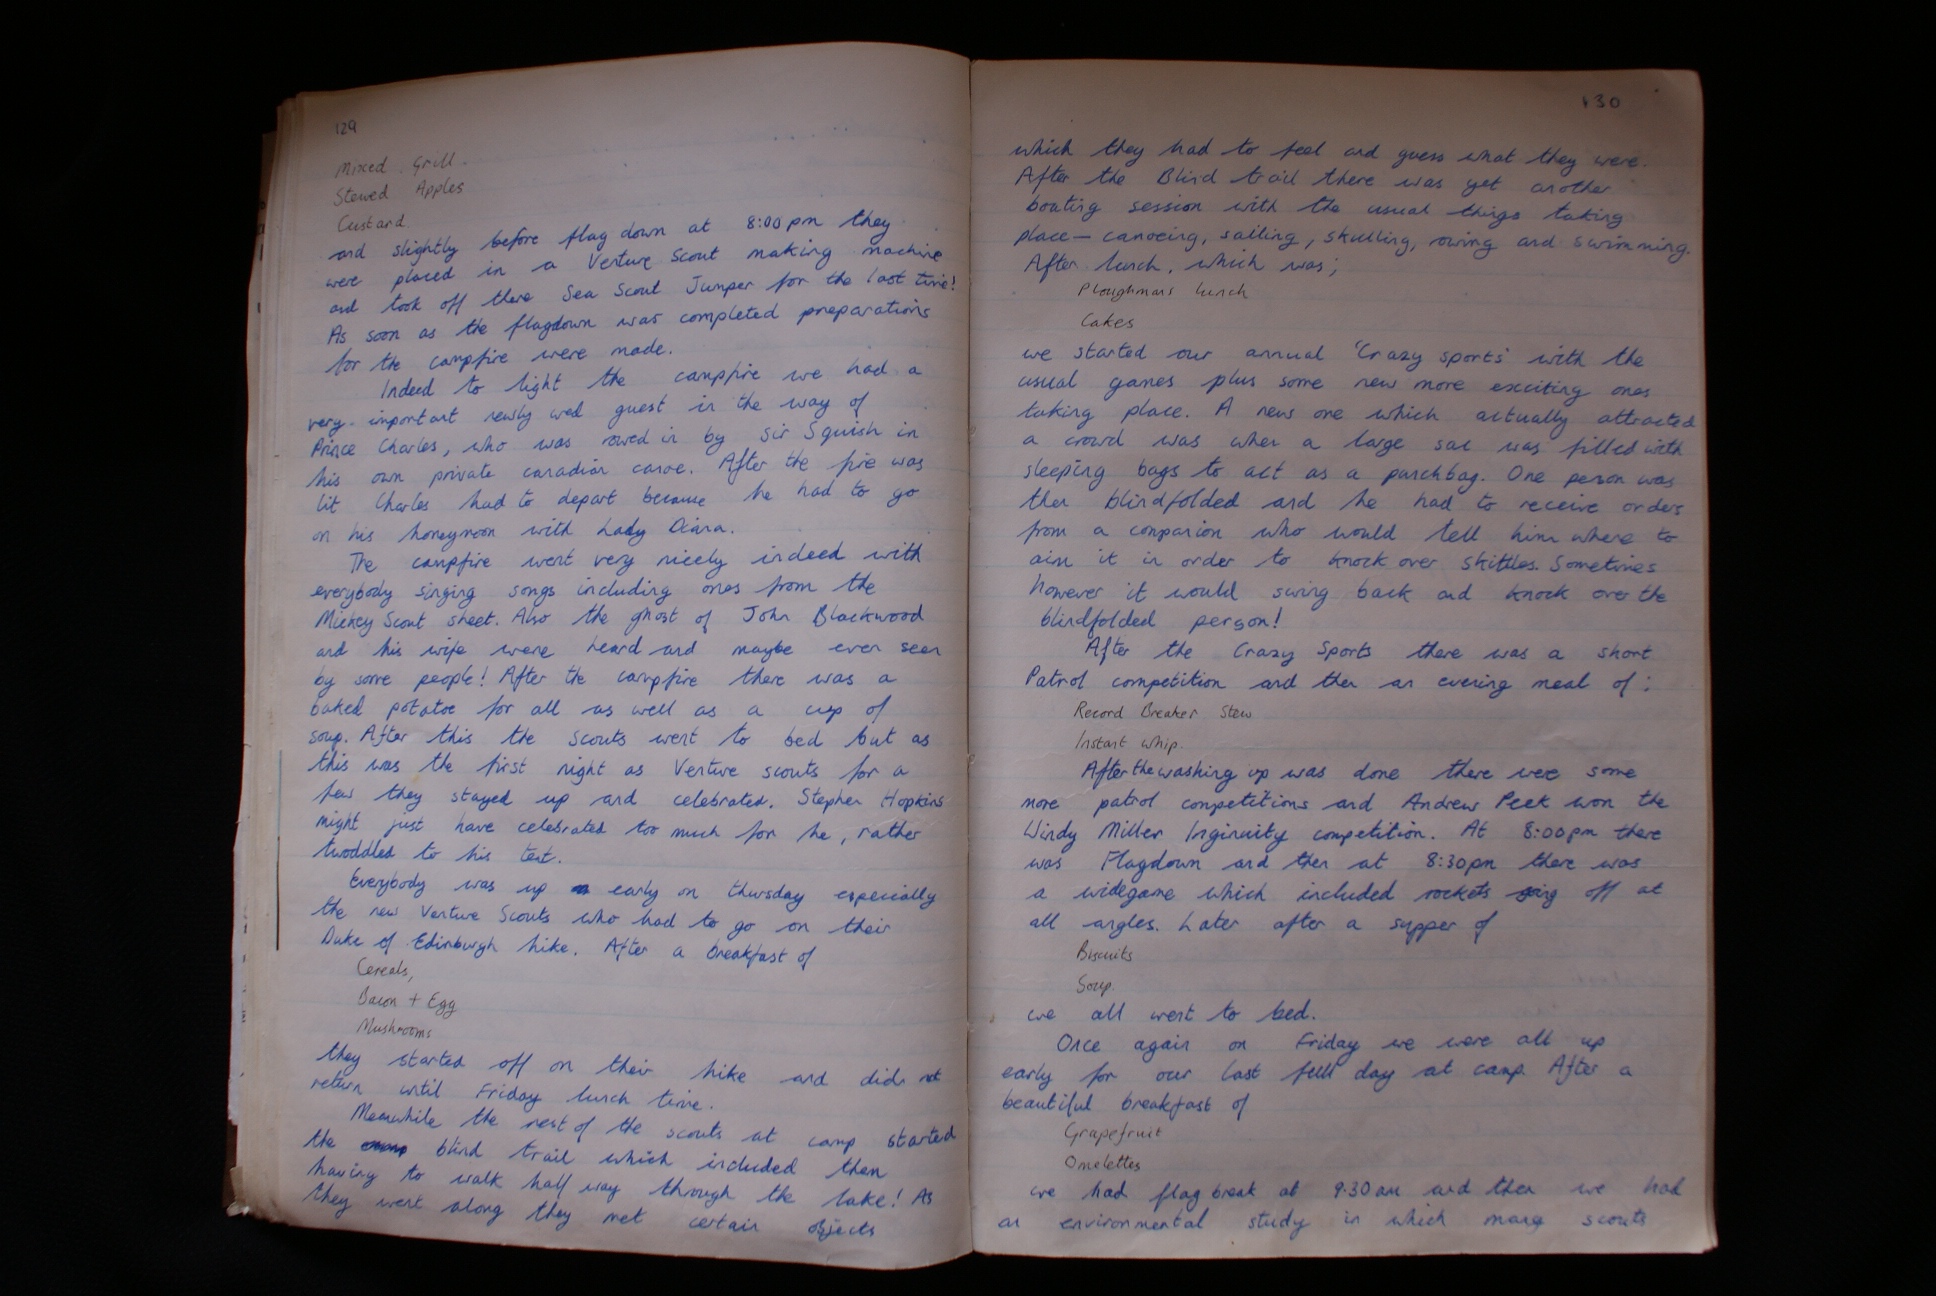 129
Mixed Grill.
Stewed Apples
Custard
and slightly before flag down at 8:00pm they
were placed in a Venture Scout making machine
and took off there Sea Scout Jumper for the last time!
As soon as the flagdown was completed preparations
for the campfire were made.
Indeed to light the campfire we had a
very important newly wed guest in the way of
Prince Charles, who was rowed in by Sir Squish in
his own private canadian canoe. After the fire was
lit Charles had to depart because he had to go
on his honeymoon with Lady Diana.
The campfire went very nicely indeed with
everybody singing songs including ones from the
Mickey Scout sheet. Also the ghost of John Blackwood
and his wife were heard and maybe even seen
by some people! After the campfire there was a
baked potatoe for all as well as a cup of
soup. After this the scouts went to bed but as
this was the first night as Venture scouts for a
few they stayed up and celebrated. Stephen Hopkins
might just have celebrated too much for he, rather
twoddled to his tent.
Everybody was up early on thursday especially
the new Venture Scouts who had to go on their
Duke of Edinburgh hike. After a breakfast of
Cereals,
Bacon + Egg
Mushrooms
they started off on their hike and did not
return until Friday lunch time.
Meanwhile the rest of the scouts at camp started
the blind trail which included them
having to walk half way through the lake! As
they went along they met certain objects
130
which they had to feel and guess what they were.
After the Blind trail there was yet another
boating session with the usual things taking
place— canoeing, sailing, skulling, rowing and swimming.
After lunch, which was;
Ploughmans lunch
Cakes
we started our annual 'Crazy sports' with the
usual games plus some new more exciting ones
taking place. A new one which actually attracted
a crowd was when a large sac was filled with
sleeping bags to act as a punchbag. One person was
then blindfolded and he had to receive orders
from a companion who would tell him where to
aim it in order to knock over skittles. Sometimes
however it would swing back and knock over the
blindfolded person!
After the Crazy Sports there was a short
Patrol competition and then an evening meal of;
Record Breaker Stew
Instant whip.
After the washing up was done there were some
more patrol competitions and Andrew Peek won the
Windy Miller Inginuity competition. At 8:00pm there
was Flagdown and then at 8:30pm there was
a widegame which included rockets going off at
all angles. Later after a supper of
Biscuits
Soup.
we all went to bed.
Once again on Friday we were all up
early for our last full day at camp. After a
beautiful breakfast of
Grapefruit
Omelettes
we had flag break at 9.30am and then we had
an environmental study in which many scouts